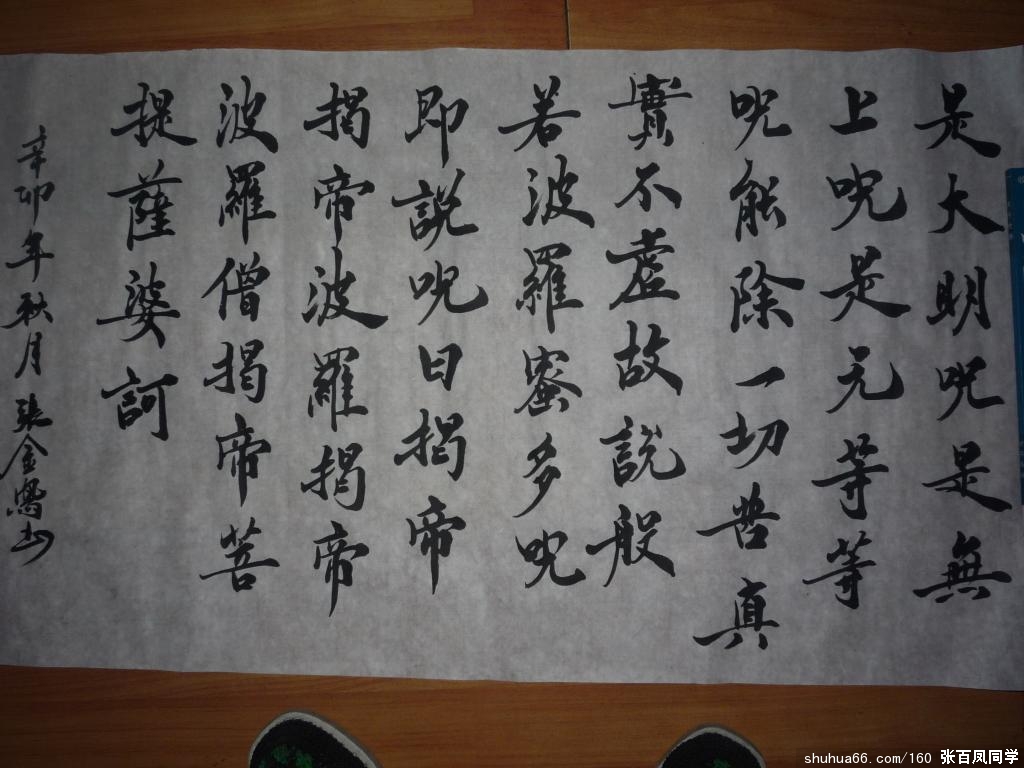 是大明呪是無
上呪是无等等
呪能除一切苦真
實不虛故說般
若波羅蜜多呪
即說呪曰揭帝
揭帝波羅揭帝
波羅僧揭帝菩
提薩婆訶
辛卯年秋月張金
shuhua66.com/160 张百凤同学